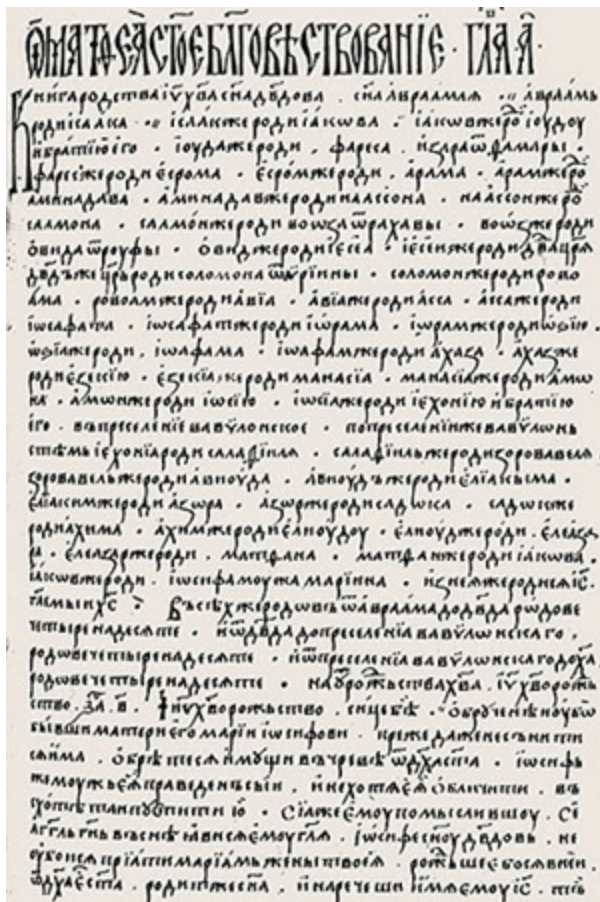 Ѿ маѳеа ст҃ое бл҃говѣствованїе · гла҃ а҃ ·
Книга родства і҃у х҃ва сн҃а дв҃дова . сн҃а авраамля · авраамъ
роди ісаака · ісаакже роди іакѡва · іакѡвже роⷣ іоудоу
и братїю его · іоудаже роди , фареса , и зара ѿ фамары ·
фаресже роди есрома · есромже роди , арама · арамже роⷣ
аминадава · аминадавже роди наассона · наассонже роⷣ
салмона · салмонже роди воѡза ѿ рахавы · воѡзже роди
ѡвида ѿ роуфы · овидже роди іессеа · іессеиже роди дв҃да цр҃я
дв҃дъже цр҃ь роди соломона ѿ оурїины · соломонже роди рово
ама · ровоамже роди авїа · авїаже роди асса · ассаже роди
іѡсафата · іѡсафатже роди іѡрама · іѡрамже роди ѡзїю ·
ѡзїаже роди , іѡафама · іѡафамже роди ахаза · ахазже
роди езекїю · езекїаже роди манасїа · манасїаже роди амѡ
на · амѡнже роди іѡсїю · іѡсїаже роди іехонїю и братїю
его · въ преселенїе вавѵлонское · по преселенїиже вавѵлонь
стѣмъ іехонїа роди салаѳїиля · салаѳїильже роди зоровавеля
зоровавельже роди авиоуда · авиоудъже роди елїакыма ·
елїакимже роди азора · азорже роди садѡка · садѡкже
роди ахима · ахимже роди елиоудоу · елиоудже роди , елеаза
ра · елеазарже роди , матѳана · матѳанже роди іакѡва ·
іакѡвже роди . іѡсифа моужа марїина · из неяже родися і҃с ·
гл҃емыи х҃с Въсѣхже родѡвъ ѿ авраама до дв҃да рѡдове
четыренадесяте · и ѿ дв҃да до преселенїа вавѵлѡнскаго ,
родѡве четыренадесяте · и ѿ преселенїа вавѵлѡнскаго до х҃а
родѡве четыренадесяте · на оутрїи рожⷣьства х҃ва . і҃у х҃во рожⷣь
ство . за҃ . в҃ . І҃у х҃во рожьство . сице бѣ · обрученѣ ноу бѡ
бывши матери его марїи іѡсифови . преже даже не сънити
ся има . обрѣтеся имущи въ чревѣ ѿ дх҃а ст҃а · іѡсифъ
же моужь ея праведенъ сыи , и не хотя ея обличити , въ
схотѣ таи поустити ю · Сїаже емоу помысли вшоу . Се
агг҃лъ гн҃ь въ снѣ ꙗвися емоу гл҃я , іѡсифе сн҃оу дв҃довъ . не
оубоися прїати марїамь жены твоея . рожⷣьшее бося в неи .
ѿ дх҃а е ст҃а . родитже сн҃а , и наречеши имя емоу і҃с . тъ